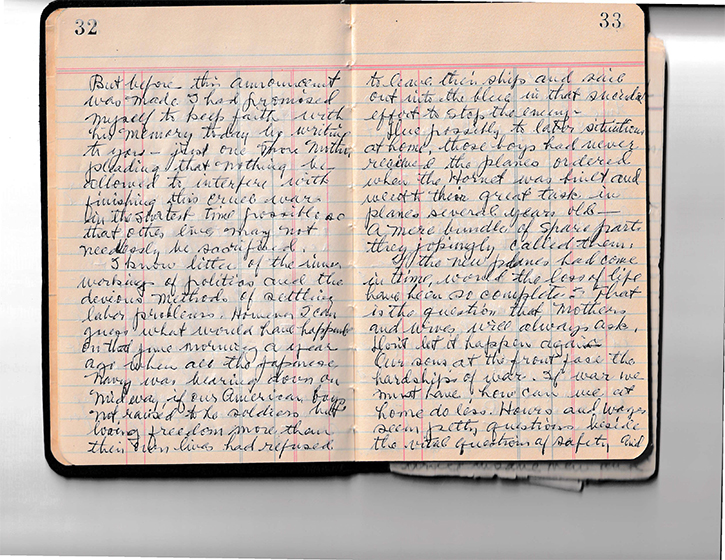 32
But before this announcement
was made I had promised
myself to keep faith with
his memory today by writing
to you — just one more Mother
pleading that nothing be
allowed to interfere with
finishing this cruel wars
in the shortest time possible so
that other lives may not
needlessly be sacrificed.
I know little of the inner
working of politics and the
devious methods of settling
labor problems. However I can
guess what would have happened
on that June morning a year
ago when all the Japanese
Navy was bearing down on
Midway if our American boys
not raised to be soldiers but
loving freedom more than
their own lives had refused
33
to leave their ships and sail
out into the blue in that suicidal
effort to stop the enemy.
Due possibly to labor situations
at home, these boys had never
received the planes ordered
when the Hornet was built and
went to their great task in
planes several years old —
A mere bundle of spare parts
they jokingly called them.
If the new planes had come
in time, would the loss of life
have been so complete? That
is the question that Mothers
and wives will always ask.
Don't let it happen again.
Our sons at the front face the
hardships of war. If war we
must have, how can we at
home do less. Hours and wages
seem petty questions beside
the vital question of safety and